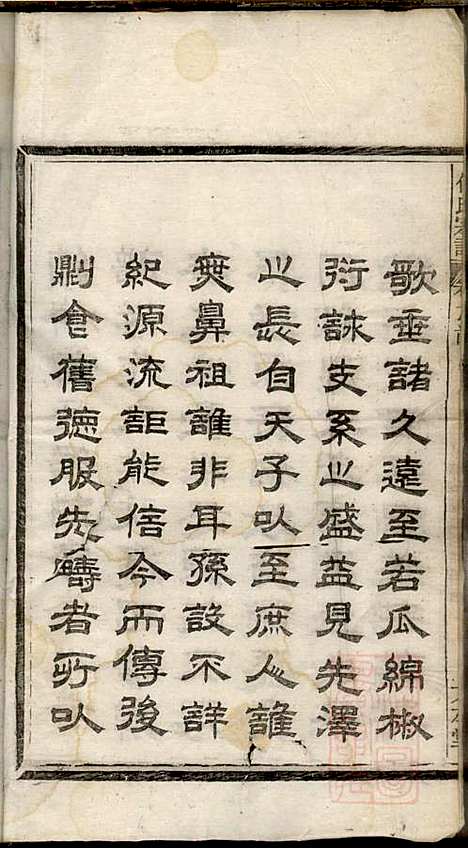 歌垂諸久遠至若瓜綿椒
衍詠支系之盛益見先澤
之長自天子以至庶人誰
無鼻祖誰非耳孫設不詳
紀源流詎能信今而傳後
則食舊德服先疇者所以